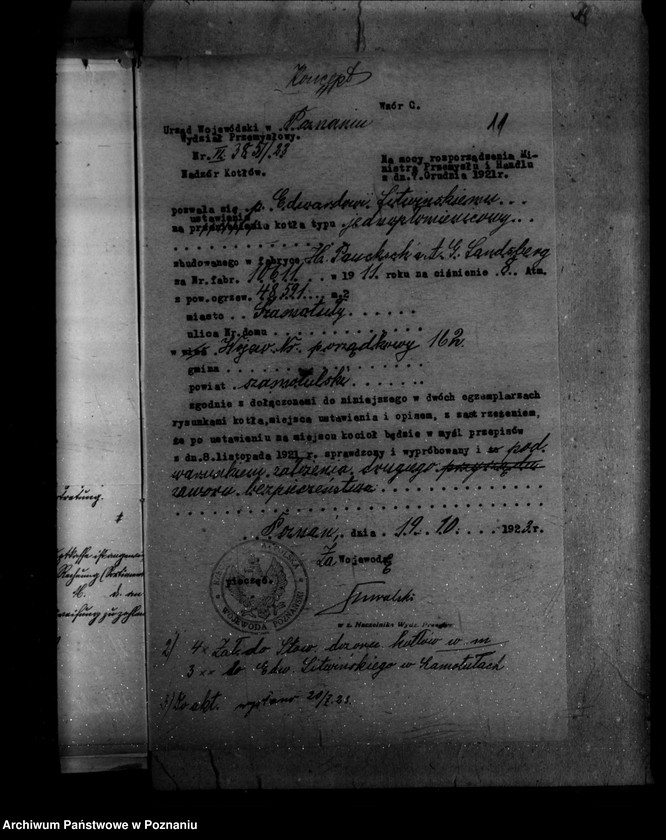 Koncept
Wzór C.
11
Urząd Wojewódzki w Poznaniu
Wydział Przemysłowy.
Nr. 38 /23
Nadzór Kotłów.
Na mocy rozporządzenia Mi-
nistra Przemysłu i Handlu
z dn.7.Grudnia 1921r.
pozwala się p. Edwardowi Litwińskiemu
ustawienie
na kotła typu jednopłomienicowy
zbudowanego w fabryce H. Paucksch A. G. Landsberg
za Nr.fabr. 10611 w 1911 roku na ciśnienie 8 Atm.
z pow.ogrzew. 48,521 m.2
miasto Szamotuły
ulica Nr.domu
w porządkowy 162
gmina
powiat szamotulski
zgodnie z dołączonemi do niniejszego w dwóch egzemplarzach
rysunkami kotła,miejsca ustawienia i opisem, z zastrzeżeniem,
że po ustawieniu na miejscu kocioł będzie w myśl przepisów
z dn.8.listopada 1921 r. sprawdzony i wypróbowany i pod
warunkiem założenia drugiego przyrządu
zaworu bezpieczeństwa
Poznań, dnia 19. 10. 1922r.
Za Wojewodę
pieczęć.
WOJEWODA POZNAŃSKI
Kowalski
w z. Naczelnika Wydz. Przemysł
2) 4 x Zał. do Stow. dozoru kotłów w m
3 x do Edw. Litwińskiego w Szamotułach
3) Do akt. wysłano 20/I.23.
tretung.
Rechnung
M. d. an
weisung zu zahlen
Archiwum Państwowe w Poznaniu